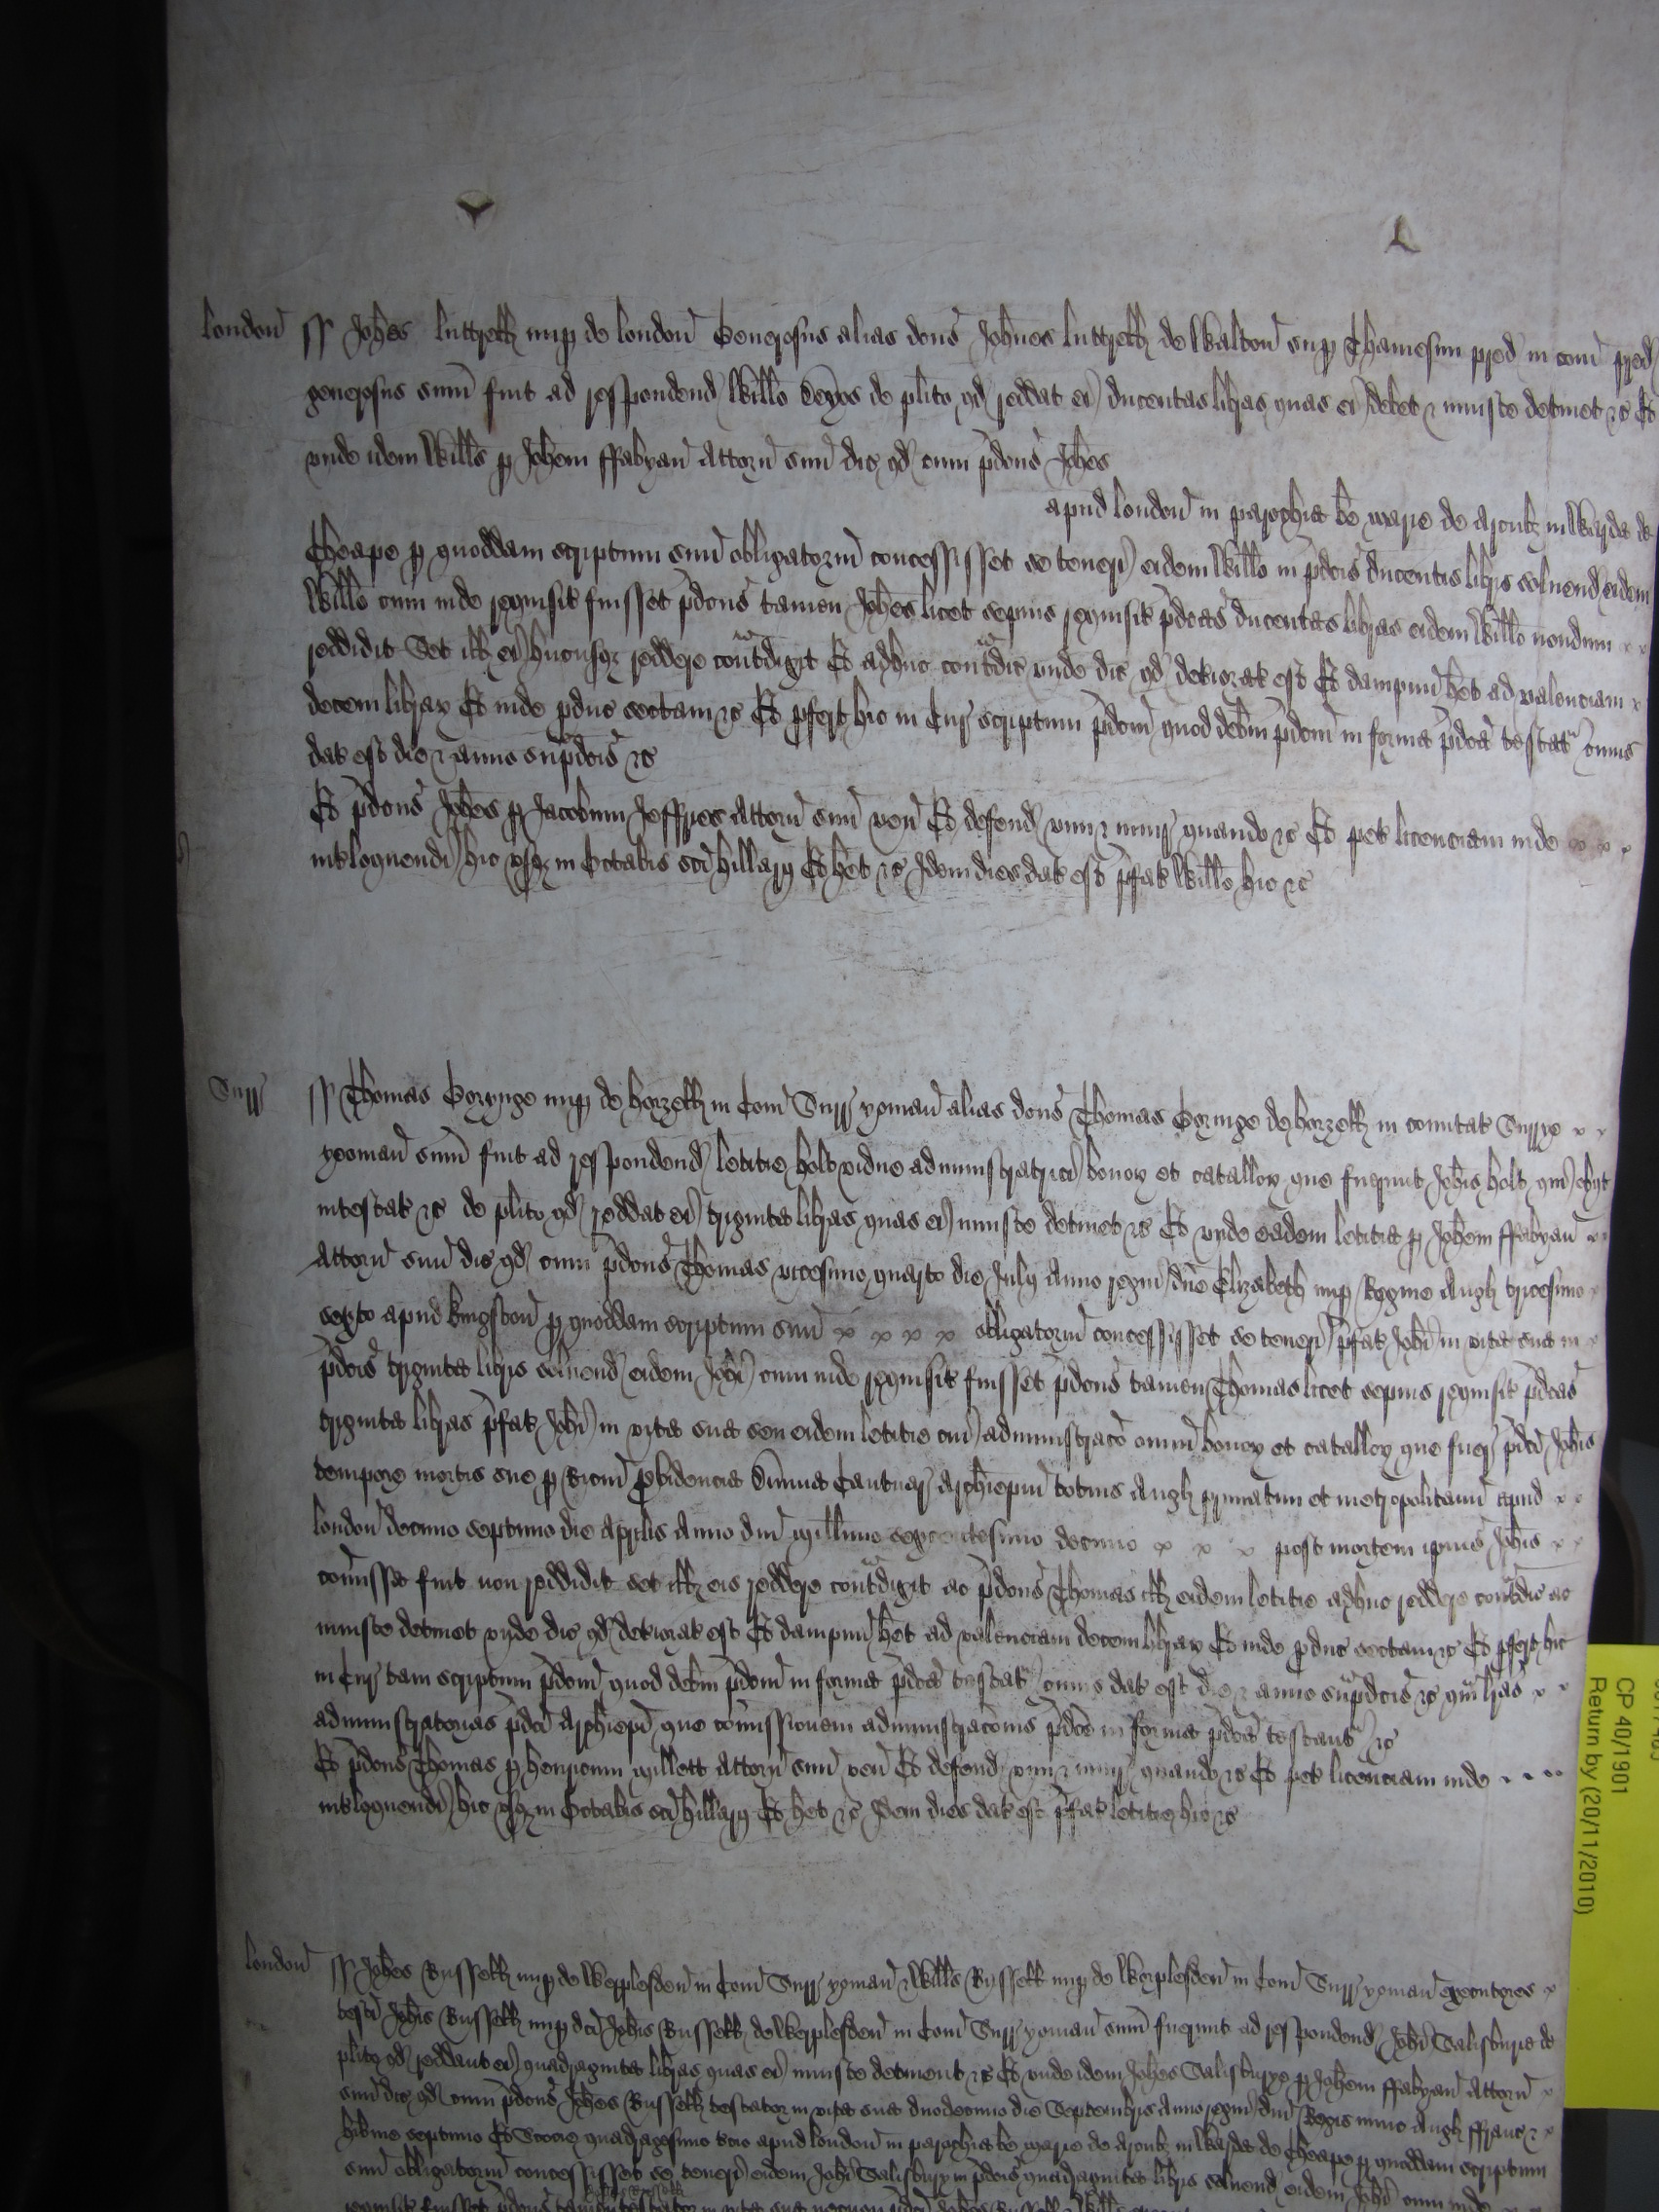 London ss Johes Luttrell nup de London Generosus alias dcus Johnes Luttrell de Walton sup Thamesim pred in com pred
generosus sum fuit ad respondend Willo de plito qd reddat ei ducentas libras quas ei debet & iniuste detinet &c Et
unde idem Willus p Johem ffabyan Attorn suu dic qd cum pdcus Johes
apud London in parochia be Marie de Arcub in Warda de
Cheape p quoddam scriptum suu obligatoriu concessisset se teneri eidem Willo in pdcis ducentis libris solvend eidem
Willo cum inde requisit fuisset pdcus tamen Johes licet sepius requisit pdcas ducentas libras eidem Willo nondum
reddidit Set ill ei hucusqz reddere contradixit Et adhuc contradic unde dic qd deteriorat est Et dampnu het ad valenciam
decem librar Et inde pduc sectam &c Et pfert hic in Cur scriptum pdcm quod debm pdcm in forma pdca testat cuius
dat est die & anno supradcis &c
Et pdcus Johes p Jacobum Jeffries Attorn suu ven Et defend vim & iniur quando &c Et pet licenciam inde
intloquendi hic usqz in Octabis sci Hillarij Et het &c Idem dies dat est pfat Willo hic &c
Surr ss Thomas Gorynge nup de Horzell in Com Surr yoman alias dcus Thomas Goringe de Horzell in comitat Surrye
yeoman sum fuit ad respondend Letitie Holt vidue administratrici bonor et catallor que fuerunt Johis Holt qui obijt
intestat &c de plito qd reddat ei triginta libras quas ei iniuste detinet &c Et unde eadem Letitia p Johem ffabyan
Attorn suu dic qd cum pdcus Thomas vicesimo quarto die Julij Anno regni dne Elizabeth nup Regine Angl tricesimo
sexto apud Kingston p quoddam scriptum suu obligatoriu concessisset se teneri pfat Johi in vita sua in
pdcis triginta libris solvend eidem Johi cum inde requisit fuisset pdcus tamen Thomas licet sepius requisit pdcas
triginta libras pfat Johi in vita sua seu eidem Letitie cui administraco omniu bonor et catallor que fuer pdci Johis
tempore mortis sue p Ricum pvidencia Divina Cantuar Archiepm totius Angl primatem et metropolitanu apud
London decimo septimo die Aprilis Anno dni millimo sexcentesimo decimo post mortem ipius Johis
comissa fuit non reddidit set ill eis reddere contradixit ac pdcus Thomas ill eidem Letitie adhuc reddere contradic ac
iniuste detinet unde dic qd deteriorat est Et dampnu het ad valenciam decem librar Et inde pduc sectam &c Et pfert hic
in Cur tam scriptum pdcm quod debm pdcm in forma pdca testat cuius dat est die & anno supradcis &c quam lras
administratorias pdci Archiepi que comissionem administracois pdce in forma pdca testant &c
Et pdcus Thomas p Henricum Millett Attorn suu ven Et defend vim & iniur quando &c Et pet licenciam inde
intloquendi hic usqz in Octabis sci Hillarij Et het &c Idem dies dat est pfat Letitie hic &c
London ss Johes Russell nup de Worplesden in Com Surr yoman & Willus Russell nup de Worplesden in Com Surr yoman executores
testi Johis Russell nup dci Johis Russell de Worplesden in Com Surr yoman sum fuerunt ad respondend Johi Salisburie de
plito qd reddant ei quadraginta libras quas ei iniuste detinent &c Et unde idem Johes Salisburye p Johem ffabyan Attorn
suu dic qd cum pdcus Johes Russell testator in vita sua duodecimo die Septembris Anno regni dni Regis nunc Angl ffranc &
Hibnie septimo Et Scotie quadragesimo tcio apud London in parochia be Marie de Arcub in Warda de Cheape p quoddam scriptum
suu obligatoriu concessisset se teneri eidem Johi Salisbury in pdcis quadraginta libris solvend eidem Johi cum inde
requisit fuisset pdcus tamen testator in vita sua
CP 40/1901
Return by (20/11/2010)